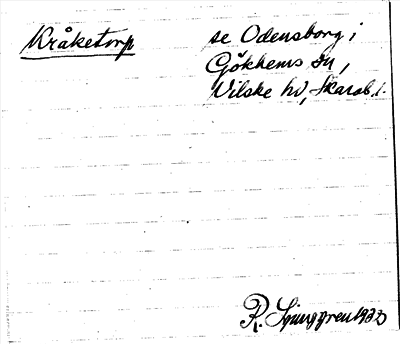 Kråketorp se Odensborg i
Gökhems sn,
Vilske hd, Skarab. l.
R. Ljunggren 1933